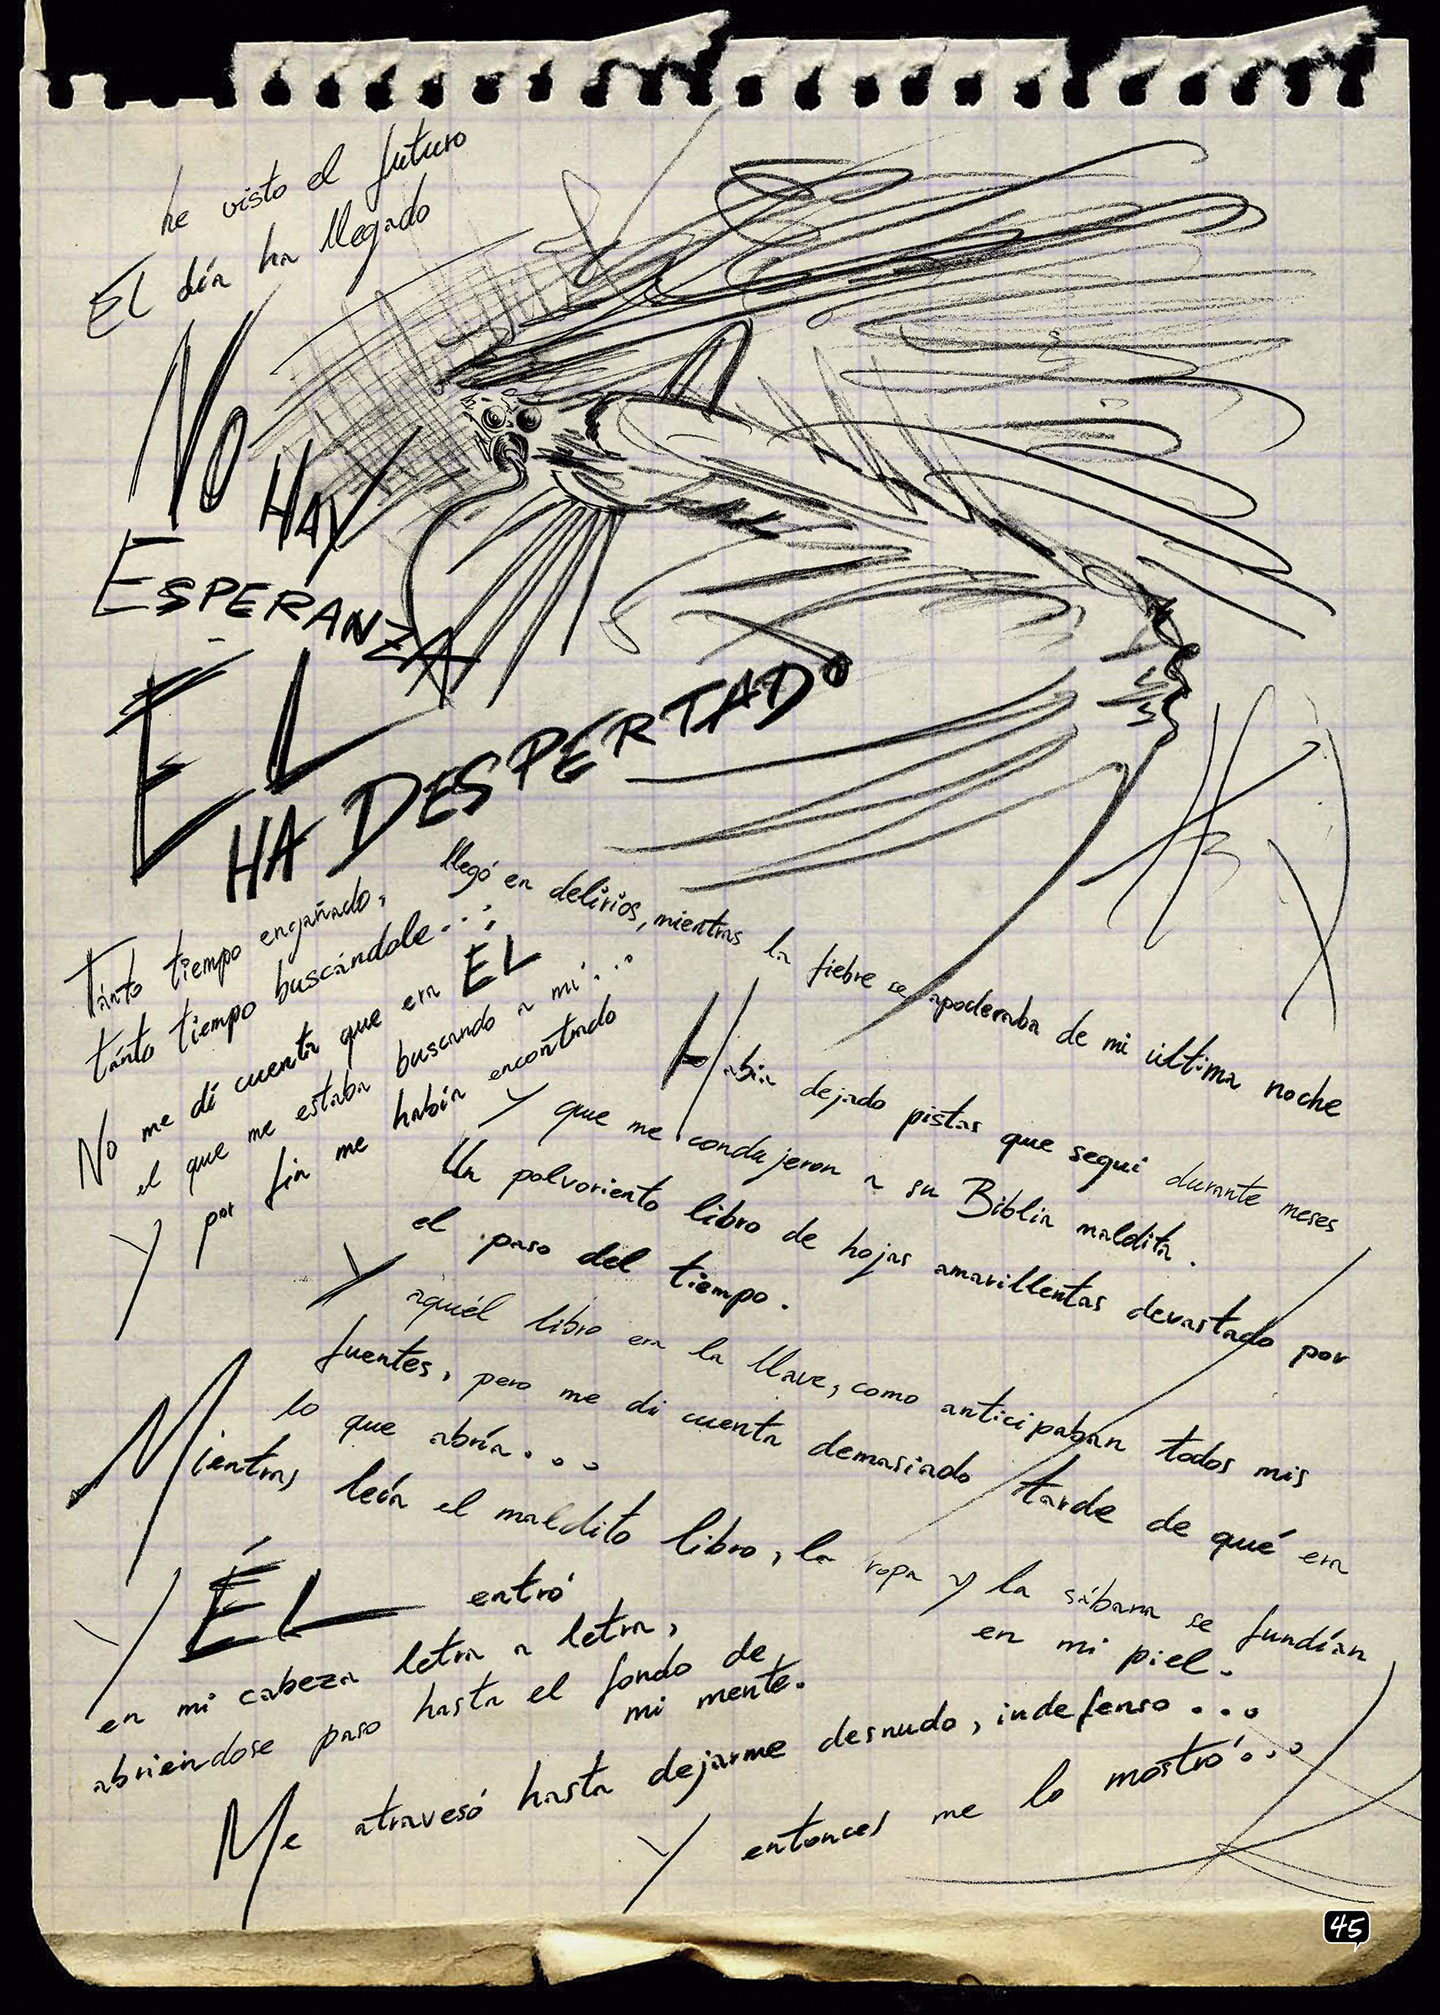 he visto el futuro
El día ha llegado
NO
HAY
ESPERANZA
EL
HA DESPERTADO
Tánto tiempo engañado,
tánto tiempo buscándole...
No me di cuenta que era ÉL
el que me estaba buscando a mí...
Y por fin me había encontrado
llegó en delirios, mientras la fiebre se apoderaba de mi última noche
Había dejado pistas que seguí durante meses
Y que me condujeron a su Biblia maldita.
Un polvoriento libro de hojas amarillentas devastado por
el paso del tiempo.
Y aquél libro era la llave, como anticipaban todos mis
fuentes, pero me di cuenta demasiado tarde de qué era
lo que abría...
Mientras leía el maldito libro, la ropa y la sábana se fundían
en mi piel.
Y ÉL entró
en mi cabeza letra a letra,
abriéndose paso hasta el fondo de
mi mente.
Me atravesó hasta dejarme desnudo, indefenso...
Y entonces me lo mostró...
45